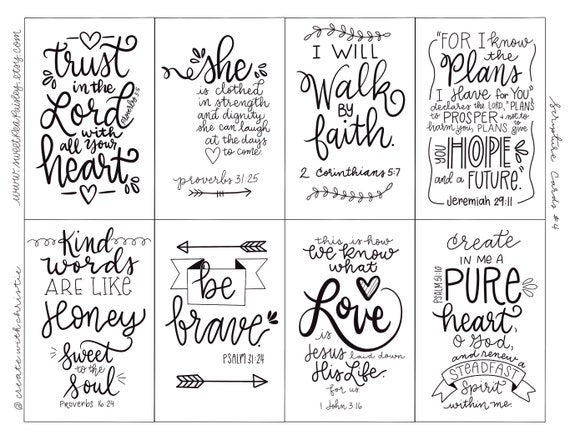 trust
in the
Lord
with
all your
heart
Proverbs 3:5
she
is clothed
in strength
and dignity
she can laugh
at the days
to come.
proverbs 31:25
I WILL
Walk
BY
faith.
2 Corinthians 5:7
"FOR I know
the
Plans
I Have for YOU"
declares the LORD, "PLANS
to PROSPER & not to
harm you, PLANS to give
YOU HOPE
and a FUTURE."
Jeremiah 29:11
Kind
words
ARE LIKE
Honey
Sweet
to the
Soul
Proverbs 16:24
be
brave.
PSALM 31:24
this is how
we know
what
Love
is
Jesus laid down
His Life.
for us.
1 John 3:16
Create
IN ME A
PURE
heart,
O God,
and renew a
STEADFAST
Spirit
within me.
PSALM 51:10
www.sweetpeapaisley.etsy.com
@createwithchristie
Scripture Cards #4